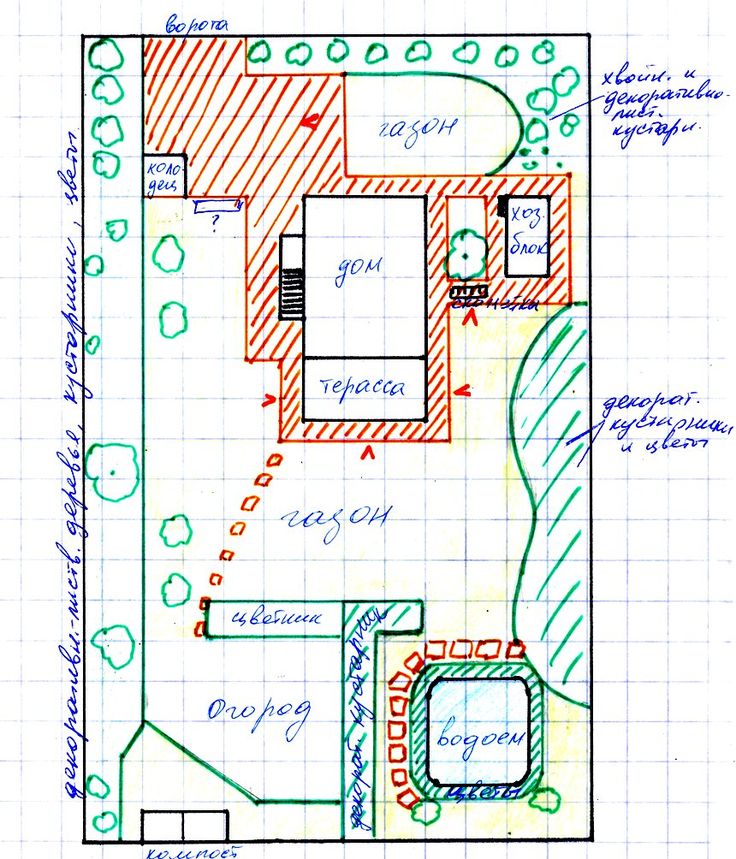 ворота
хвойн. и
декоративно-
лист.
кустарн.
газон
коло-
дец
?
хоз.
блок
дом
скамейка
терасса
декорат.
кустарники
и цветы
декоративн.-листв. деревья, кустарники, цветы
газон
цветник
декорат. кустарник
огород
водоем
цветы
компост